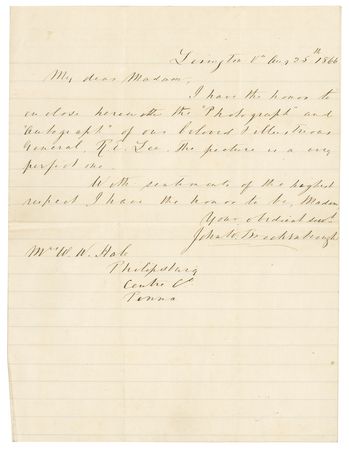 Lexington Va Aug 25th 1866
My dear Madam,
I have the honor to
enclose herewith the "Photograph" and
"Autograph" of our beloved & illustrious
General, R. E. Lee. the picture is a very
perfect one.
With sentiments of the highest
respect I have the honor to be, Madam
Your obedient servt.
John W. Brockenbrough
Mrs W. W. Hale
Philipsburg
Centre Co
Penna